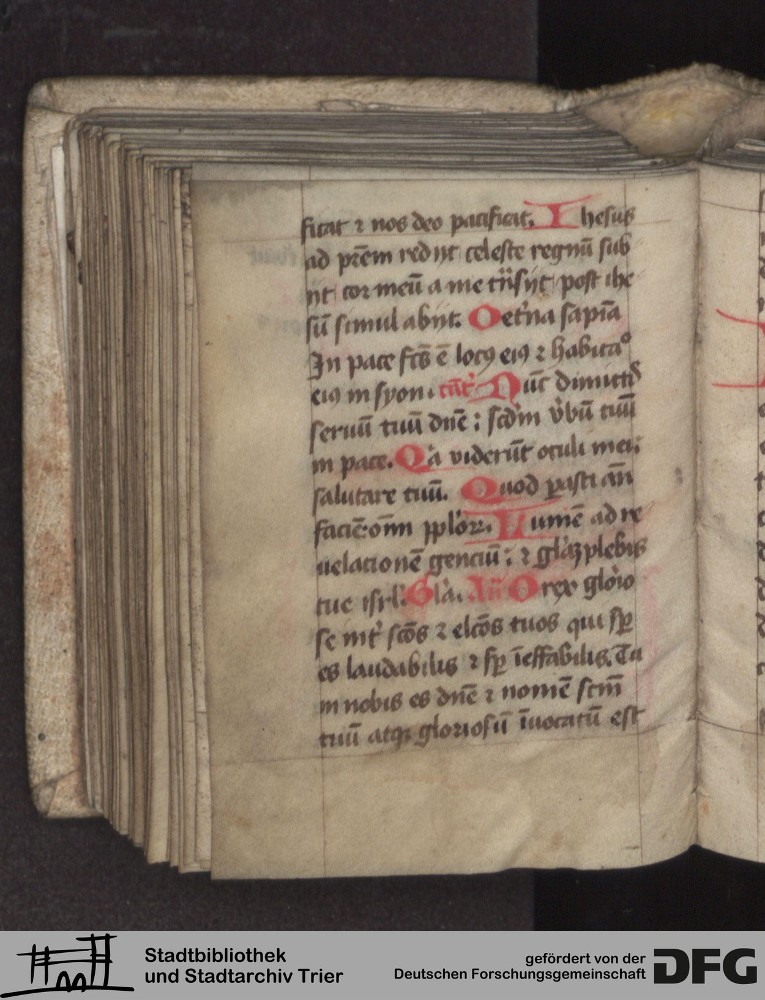 ficat ⁊ nos deo pacificat. Ihesus
ad prēm redijt celeste regnū sub
ijt cor meū a me trͣsijt post ihe
sū simul abijt. O et'na sapīa
In pace fcūs ē locꝰ eiꝰ ⁊ habitaͦ
eiꝰ in syon. cāt' Nūc dimictis
seruū tuū dnē : scdm v̓bū tuū
in pace. Qͥa viderūt oculi mei:
salutare tuū. Quod ꝑasti añ
faciē: om̄ pplōꝝ. Lumē ad re
uelationē genciū : ⁊ glāꝫ plebis
tue isrl'. Glā. Añ O rex glōio
se int' scōs ⁊ elcōs tuos qui sꝑ
es laudabilis ⁊ sꝑ īeffabilis. Tu
in nobis es dnē ⁊ nomē scm̄
tuū atqꝫ gloriosū īuocatū est
Stadtbibliothek
und Stadtarchiv Trier
gefördert von der
Deutschen Forschungsgemeinschaft
DFG